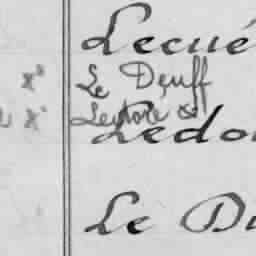 Lecué
x° Le Deuff
x° Ledoré
Ledo
Le Du